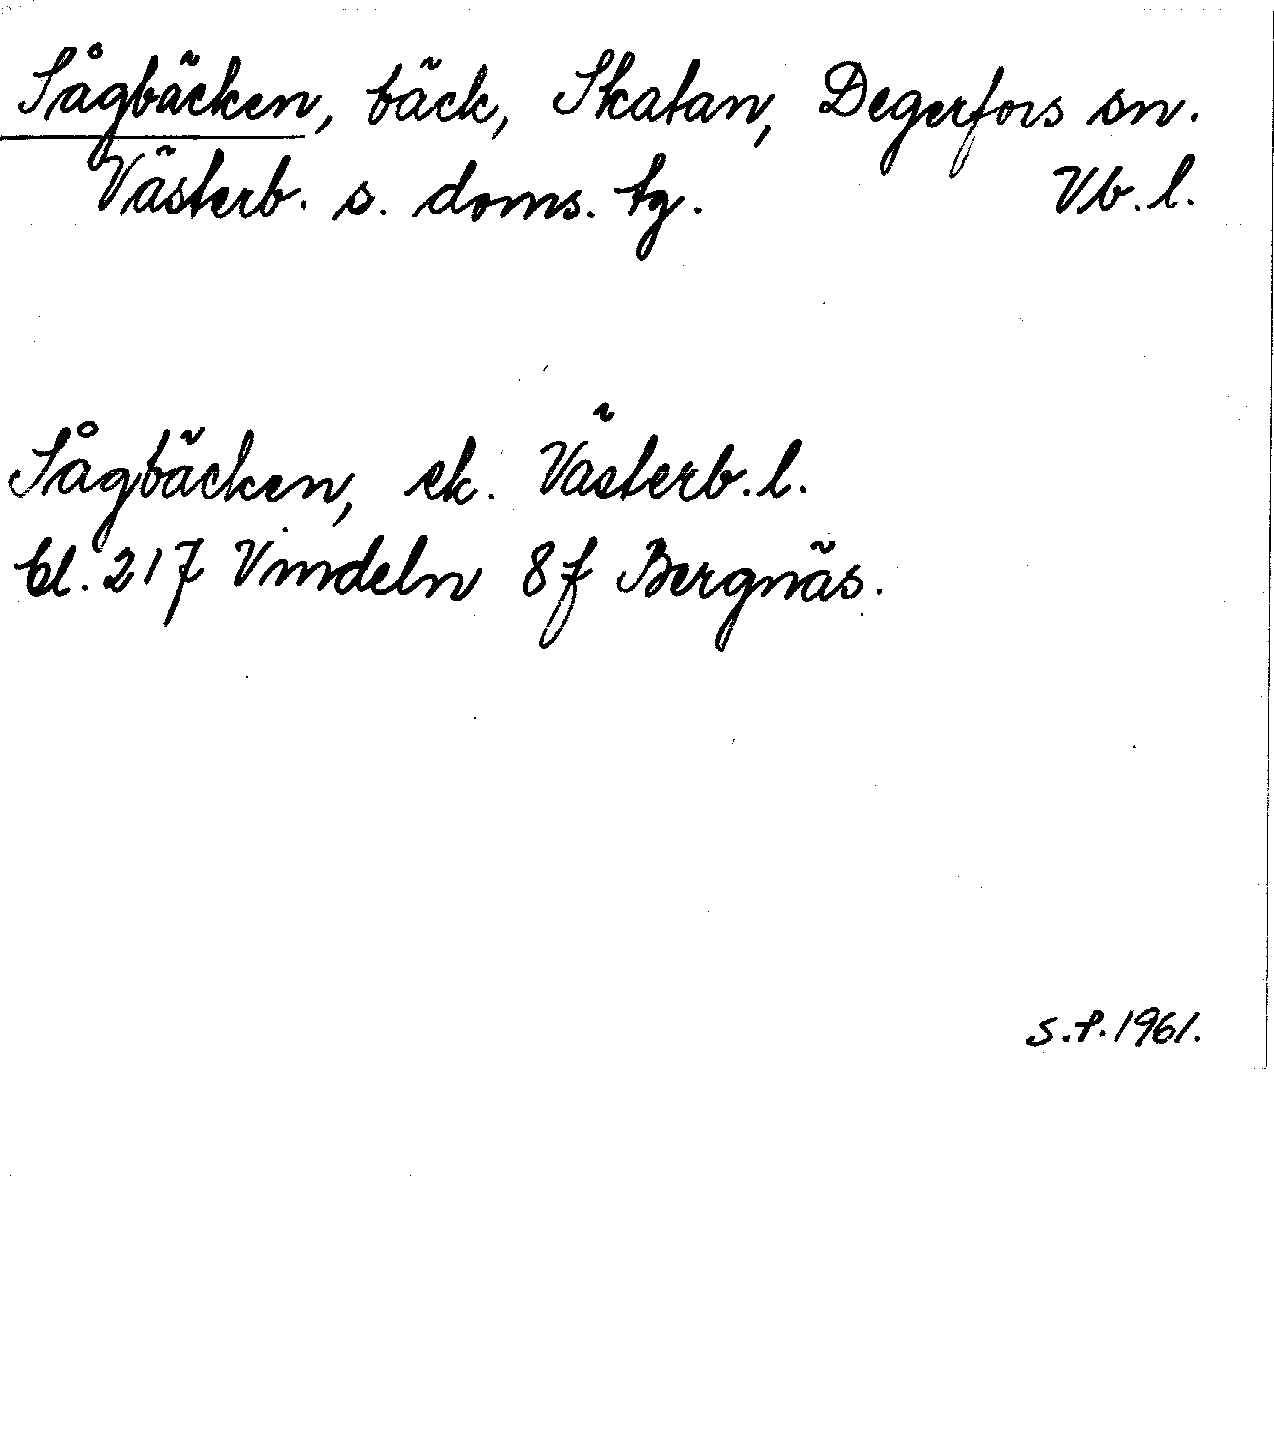 Sågbäcken, bäck, Skatan, Degerfors sn.
Västerb. s. doms. tg. Vb. l.
Sågbäcken, ek. Västerb. l.
bl. 217 Vindeln 8f Bergnäs.
S.P. 1961.